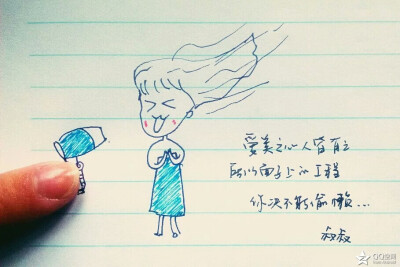 爱美之心人皆有之
所以面子上的工程
你决不能偷懒...
叔叔
QQ空间